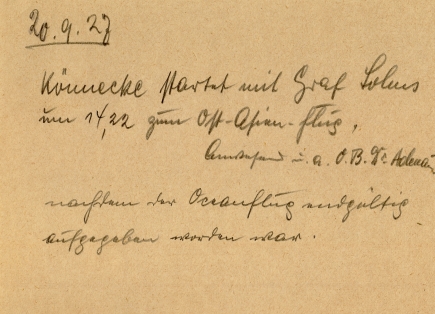 20.9.27
Könnecke startet mit Graf Solms
um 14,22 zum Ost-Asien-Flug,
Anwesend u. a. O.B. Dr.
nachdem der Oceanflug endgültig
aufgegeben worden war.